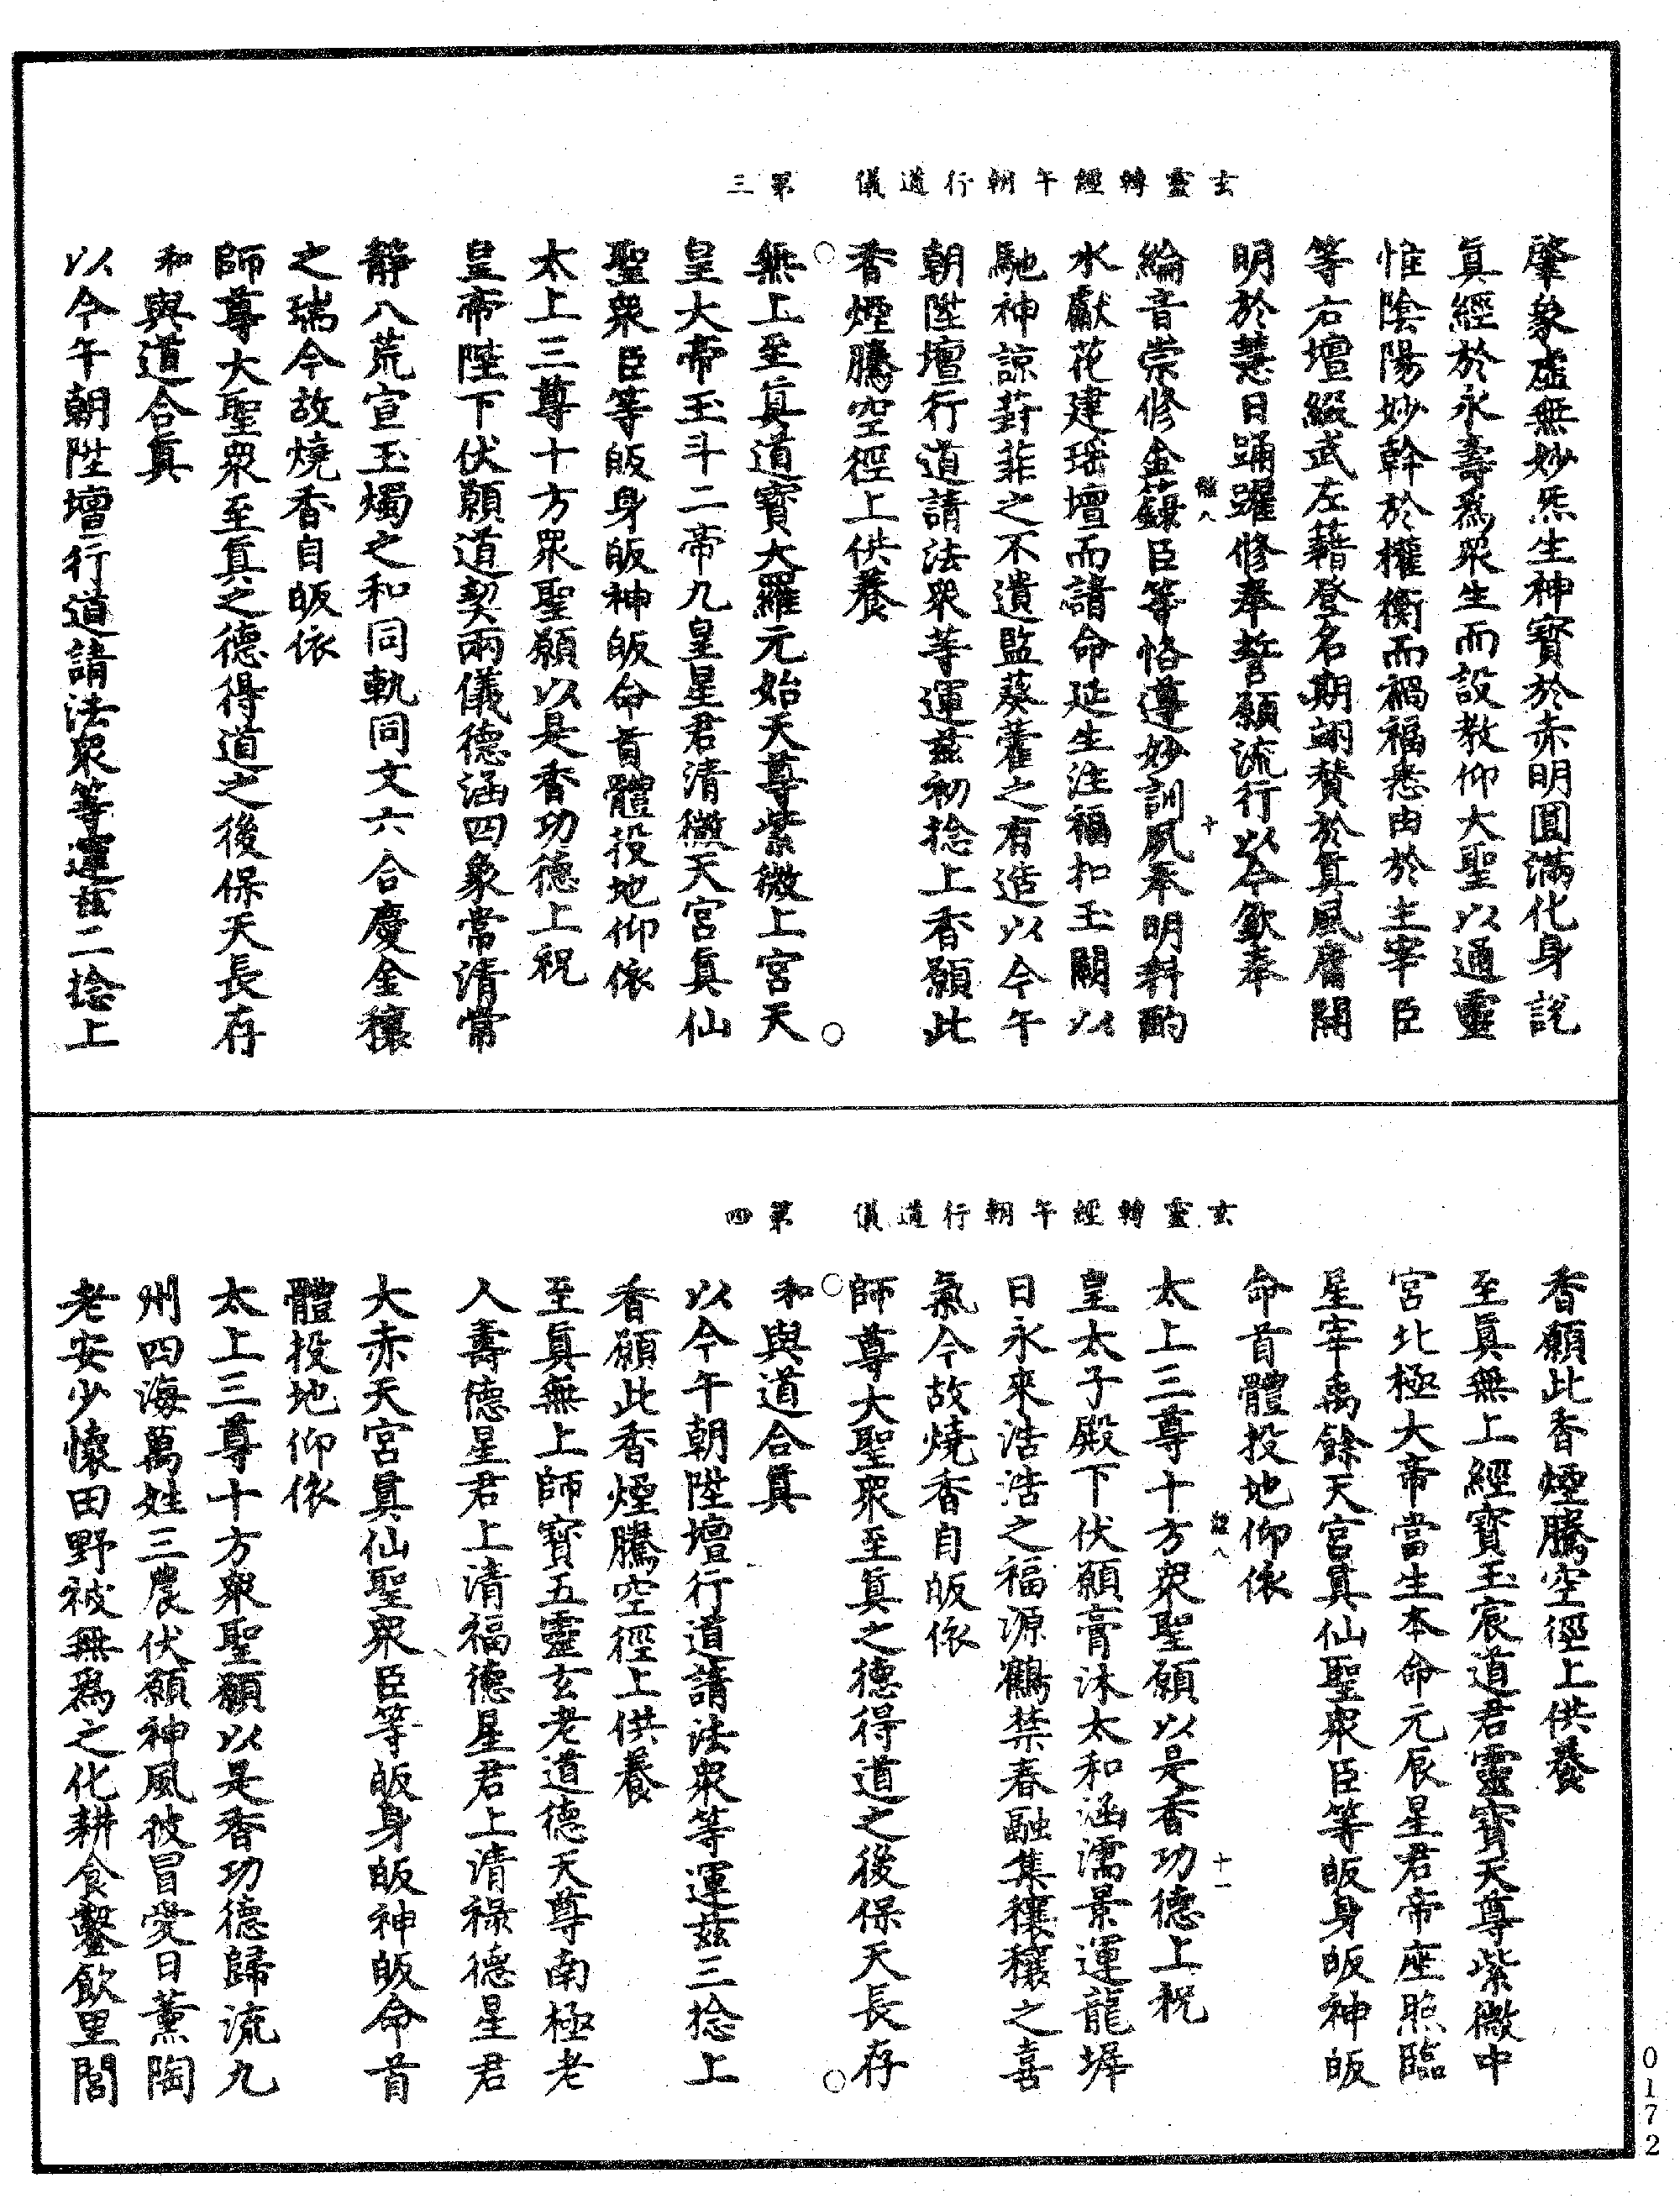 玄靈轉經午朝行道儀　第三
肇象虛無妙炁生神寶於赤明圓滿化身說
真經於永壽為眾生而設教仰大聖以通靈
惟陰陽妙斡於權衡而禍福悉由於主宰臣
等右壇綴武左藉登名期翊贊於真風庸開
明於慧日踊躍修奉誓願流行以今欽奉
八　十
綸音崇修金籙臣等恪遵妙訓夙奉明科酌
水獻花建瑶壇而請命延生注福扣玉闕以
馳神諒葑菲之不遺監葵藿之有造以今午
朝陞壇行道請法眾等運茲初捻上香願此
香煙騰空徑上供養
無上至真道寶大羅元始天尊紫微上宮天
皇大帝玉斗二帝九皇皇星君清微天宮真仙
聖眾臣等皈身皈神皈命首體投地仰依
太上三尊十方眾聖願以是香功德上祝
皇帝陛下伏願道契兩儀德涵四象常清常
靜八荒宣玉燭之和同軌同文六合慶金穰
之瑞今故燒香自皈依
師尊大聖眾至真之德得道之後保天長存
和與道合真
以今午朝陞壇行道請法眾等運茲二捻上
玄靈轉經午朝行道儀　第四
香願此香煙騰空徑上供養
至真無上經寶玉宸道君靈寶天尊紫微中
宮北極大帝當生本命元辰星君帝座照臨
星宰禹餘天宮真仙聖眾臣等皈身皈神皈
命首體投地仰依
八　十一
太上三尊十方眾聖願以是香功德上祝
皇太子殿下伏願膏沐太和涵濡景運龍墀
日永來浩浩之福源鶴禁春融集穰穰之喜
氣今故燒香自皈依
師尊大聖眾至真之德得道之後保天長存
和與道合真
以今午朝陞壇行道請法眾等運茲三捻上
香願此香煙騰空徑上供養
至真無上師寶五靈玄老道德天尊南極老
人壽德星君上清福德星君上清祿德星君
大赤天宮真仙聖眾臣等皈身皈神皈命首
體投地仰依
太上三尊十方眾聖願以是香功德歸流九
州四海萬姓三農伏願神風彼冒愛日薰陶
老安少懷田野被無為之化耕食鑿飲里閭
0172